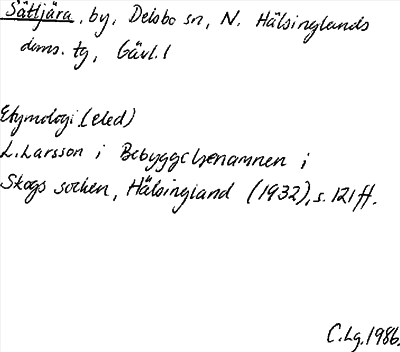 Sätljära, by, Delsbo sn, N. Hälsinglands
doms. tg, Gävl. l
Etymologi (eled)
L. Larsson i Bebyggelsenamnen i
Skogs socken, Hälsingland (1932), s. 121 ff.
C. Lg. 1986.